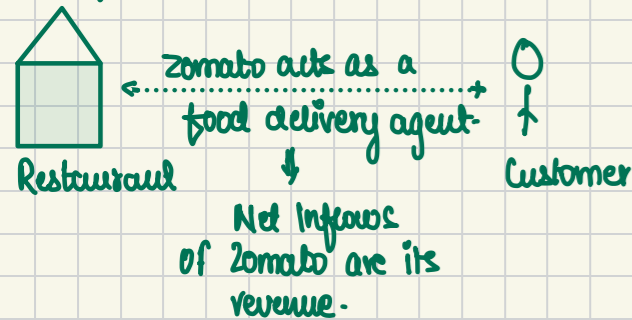 Zomato acts as a
food delivery agent.
Restaurant
Customer
Net Inflows
of Zomato are its
revenue.